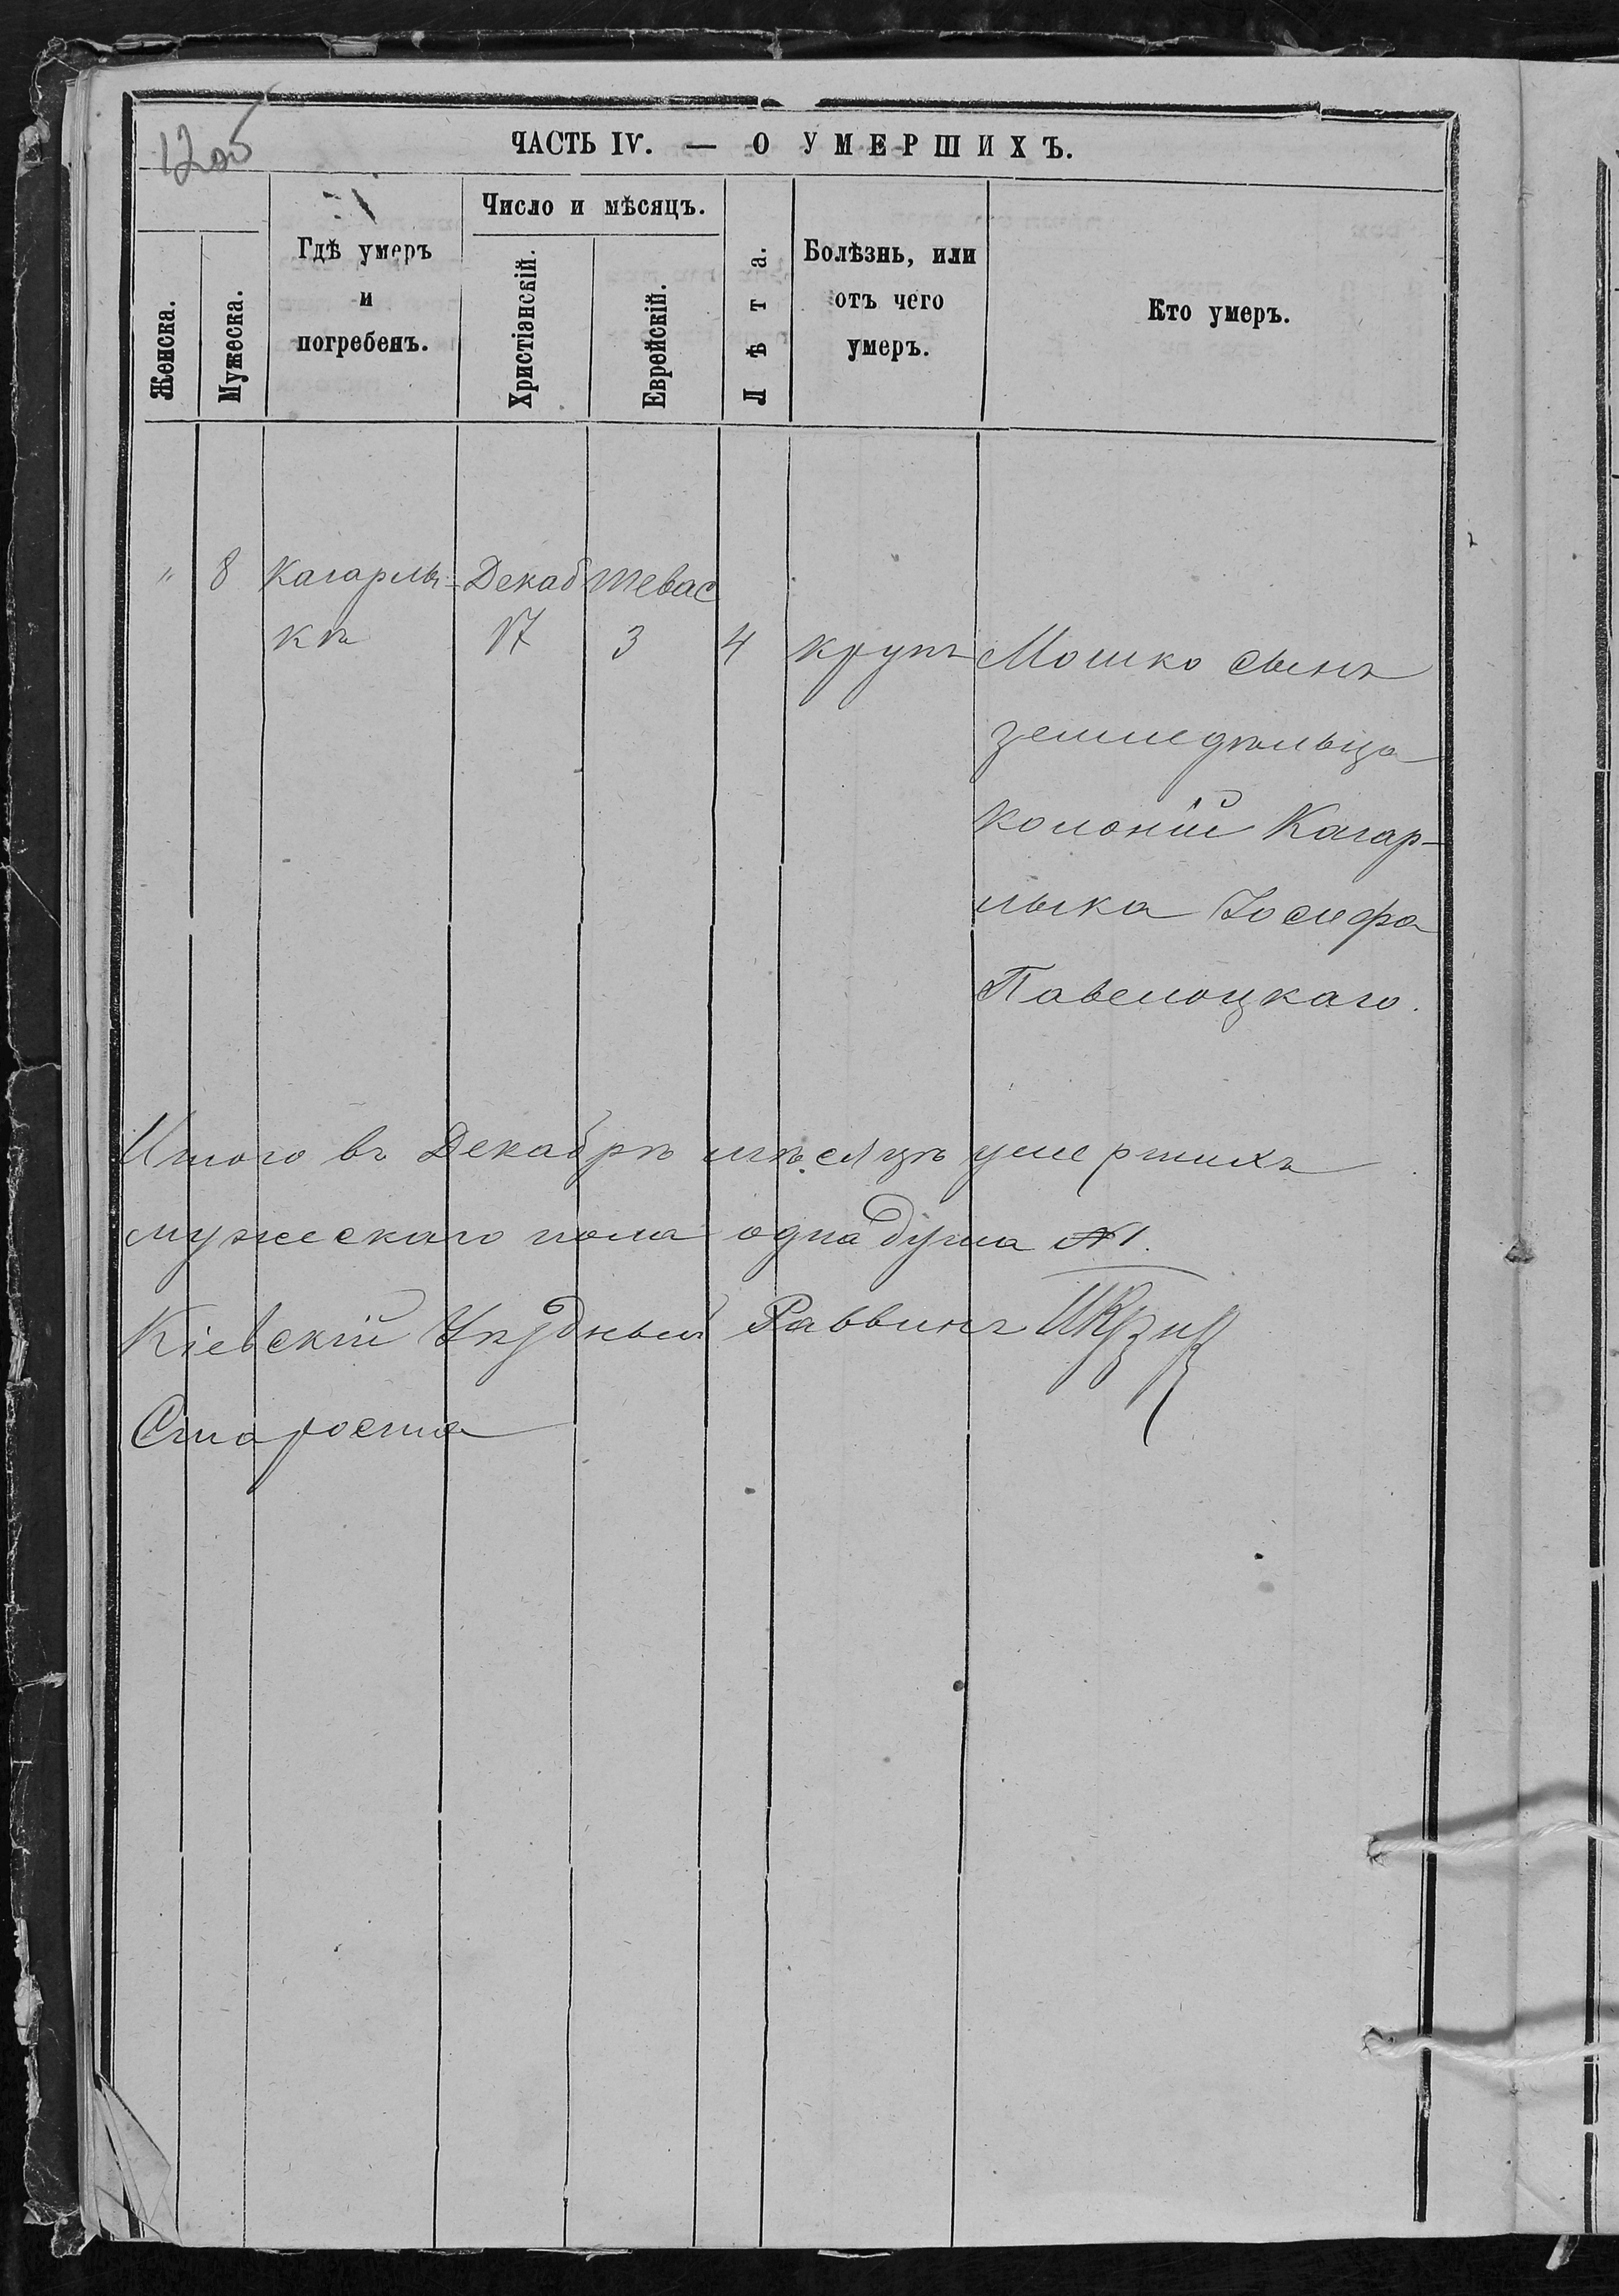 12об
ЧАСТЬ IV. — О УМЕРШИХЪ.
Женска.
Мужеска.
Гдѣ умеръ
и
погребенъ.
Число и мѣсяцъ.
Христіанскій.
Еврейскій.
Лѣта.
Болѣзнь, или
отъ чего
умеръ.
Кто умеръ.
" 8 Кагарлы- Декаб тевас
кѣ 17 3 4 крупъ Мошко сынъ
земледѣльца
колоніи Кагар-
лыка Іосифа
Павелоцкаго.
Итого въ Декабрѣ мѣсяцѣ умершихъ
мужескаго пола одна душа №1.
Кіевскій Уѣздный Раввинъ
Староста